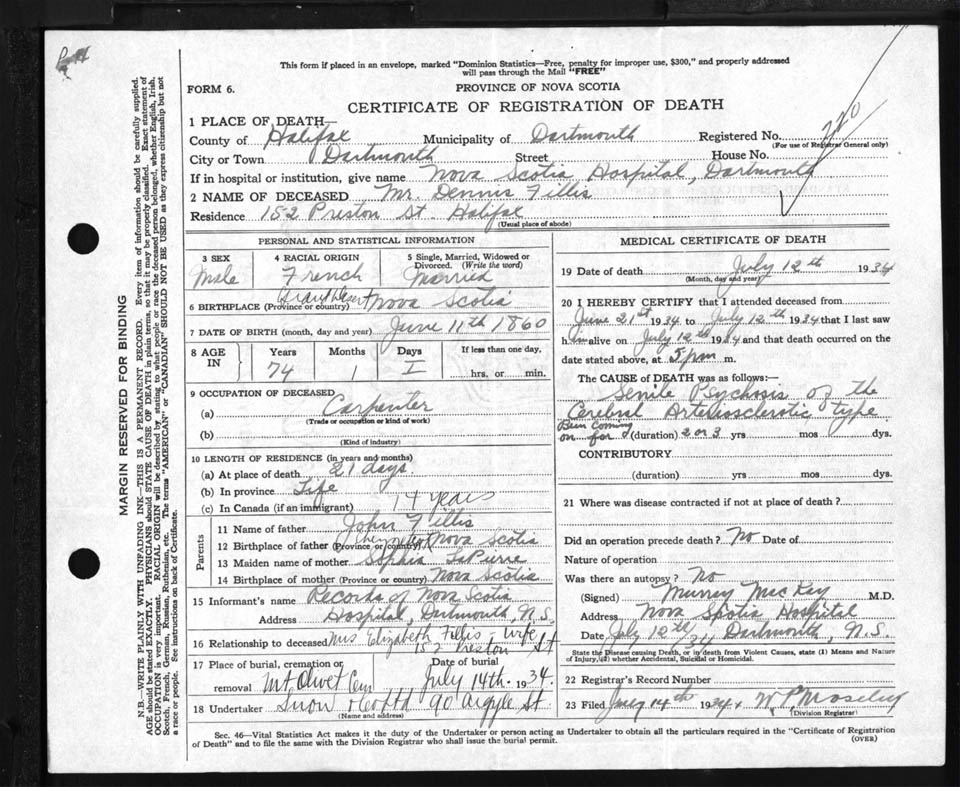 This form if placed in an envelope, marked "Dominion Statistics—Free, penalty for improper use, $300," and properly addressed
will pass through the Mail "FREE"
FORM 6.
PROVINCE OF NOVA SCOTIA
CERTIFICATE OF REGISTRATION OF DEATH
1 PLACE OF DEATH—
County of Halifax Municipality of Dartmouth Registered No.
(For use of Registrar General only)
City or Town Dartmouth Street House No.
If in hospital or institution, give name Nova Scotia Hospital, Dartmouth
2 NAME OF DECEASED Mr. Dennis Fillis
Residence 152 Preston St. Halifax
(Usual place of abode)
PERSONAL AND STATISTICAL INFORMATION
3 SEX 4 RACIAL ORIGIN 5 Single, Married, Widowed or
Divorced. (Write the word)
Male French Married
6 BIRTHPLACE (Province or country) Grand Desert Nova Scotia
7 DATE OF BIRTH (month, day and year) June 11th 1860
8 AGE IN Years Months Days If less than one day,
74 1 1 hrs. or min.
9 OCCUPATION OF DECEASED
(a) Carpenter
(Trade or occupation or kind of work)
(b)
(Kind of industry)
10 LENGTH OF RESIDENCE (in years and months)
(a) At place of death 21 days
(b) In province Life
(c) In Canada (if an immigrant) 74 years
Parents
11 Name of father John Fillis
12 Birthplace of father (Province or country) Nova Scotia
13 Maiden name of mother Sophia LaPierre
14 Birthplace of mother (Province or country) Nova Scotia
15 Informant's name Records of Nova Scotia
Address Hospital, Dartmouth, N.S.
16 Relationship to deceased Mrs Elizabeth Fillis - wife
152 Preston St
17 Place of burial, cremation or removal Mt Olivet Cem Date of burial July 14th 1934
18 Undertaker Snow & Co Ltd 90 Argyle St
(Name and address)
MEDICAL CERTIFICATE OF DEATH
19 Date of death July 12th 1934
(Month, day and year)
20 I HEREBY CERTIFY that I attended deceased from
June 21st 1934 to July 12th 1934 that I last saw
him alive on July 12th 1934 and that death occurred on the
date stated above, at 5 pm m.
The CAUSE of DEATH was as follows:—
Senile Psychosis of the
Cerebral Arteriosclerotic type
Been Coming
on for (duration) 2 or 3 yrs mos dys.
CONTRIBUTORY
(duration) yrs mos dys.
21 Where was disease contracted if not at place of death?
Did an operation precede death? No Date of
Nature of operation
Was there an autopsy? No
(Signed) Murray MacKay M.D.
Address Nova Scotia Hospital
Date July 12th 34 Dartmouth, N.S.
State the Disease causing Death, or in death from Violent Causes, state (1) Means and Nature
of Injury, (2) whether Accidental, Suicidal or Homicidal.
22 Registrar's Record Number
23 Filed July 14th 1934
(Division Registrar)
Sec. 46—Vital Statistics Act makes it the duty of the Undertaker or person acting as Undertaker to obtain all the particulars required in the "Certificate of Registration
of Death" and to file the same with the Division Registrar who shall issue the burial permit.
(OVER)
MARGIN RESERVED FOR BINDING
N.B.—WRITE PLAINLY WITH UNFADING INK—THIS IS A PERMANENT RECORD. Every item of information should be carefully supplied.
AGE should be stated EXACTLY. PHYSICIANS should STATE CAUSE OF DEATH in plain terms, so that it may be properly classified. Exact statement of
OCCUPATION is very important. RACIAL ORIGIN will be described by stating to what people or race the deceased person belonged, whether English, Irish,
Scotch, French, German, Russian, Ruthenian, etc. The terms "AMERICAN" or "CANADIAN" SHOULD NOT BE USED as they express citizenship but not
a race or people. See instructions on back of Certificate.